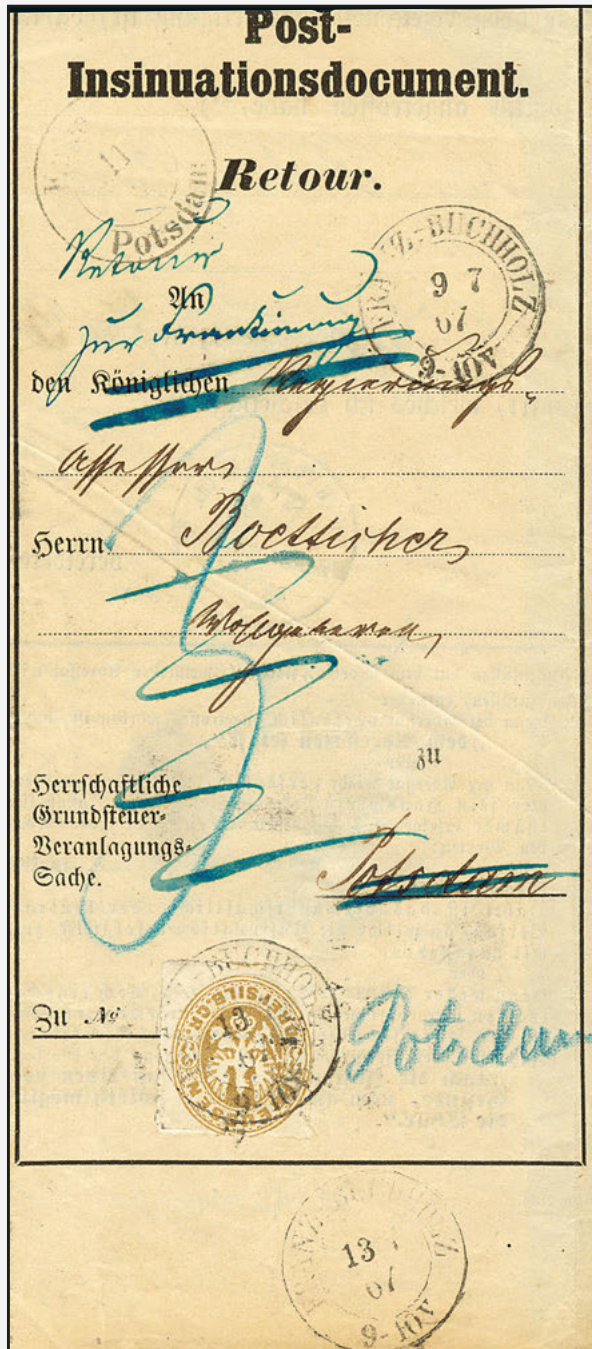 Post-
Insinuationsdocument.
Retour.
Potsdam
11
FRANZ.-BUCHHOLZ
9 7
67
9-10V
Retour
An
zur Frankirung
den Königlichen Regierungs-
Assessor
Herrn Boetticher
Wohlgeboren
zu
Herrschaftliche
Grundsteuer-
Veranlagungs-
Sache.
Potsdam
BUCHHOLZ
13
DREI SILB.GR.
Zu No
Potsdam
13
67
9-10V